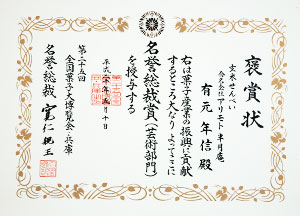 褒賞状
玄米せんべい
有元年信殿
右は菓子産業の振興に貢献
するところ大なりよってここに
名誉総裁賞(芸術部門)
を授与する
平成二十年五月十日
第二十五回
全国菓子大博覧会・兵庫
名誉総裁 寛仁親王